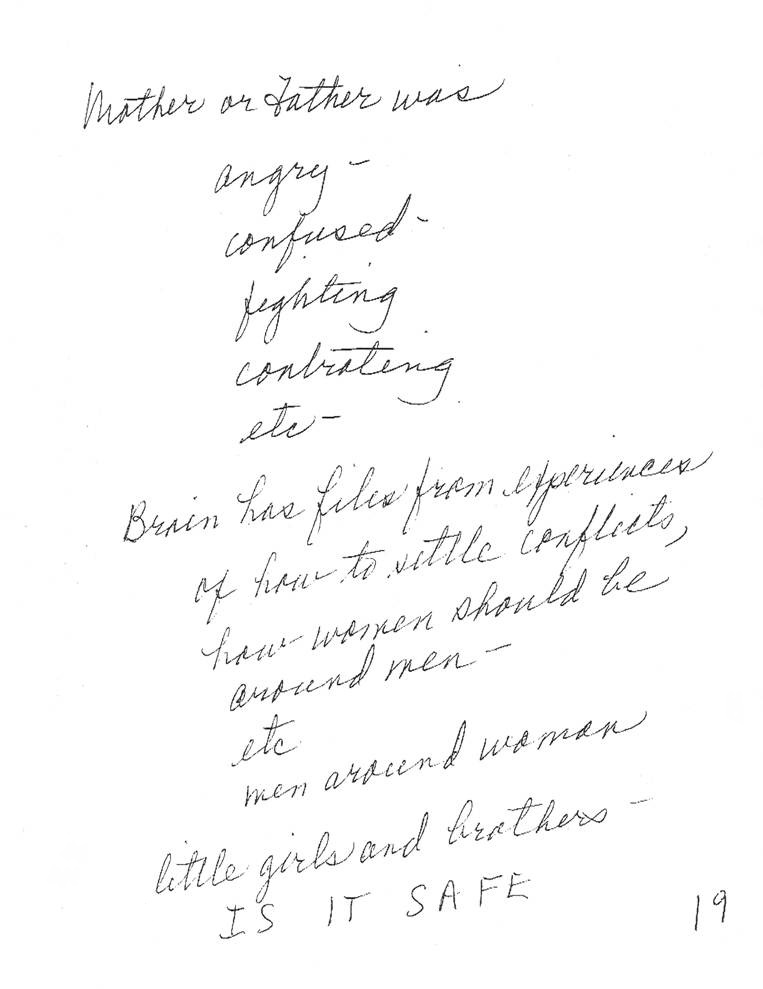 Mother or Father was
angry –
confused –
fighting
controling
etc –
Brain has files from experiences
of how to settle conflicts,
how women should be
around men –
etc
men around woman
little girls and brothers –
IS IT SAFE
19